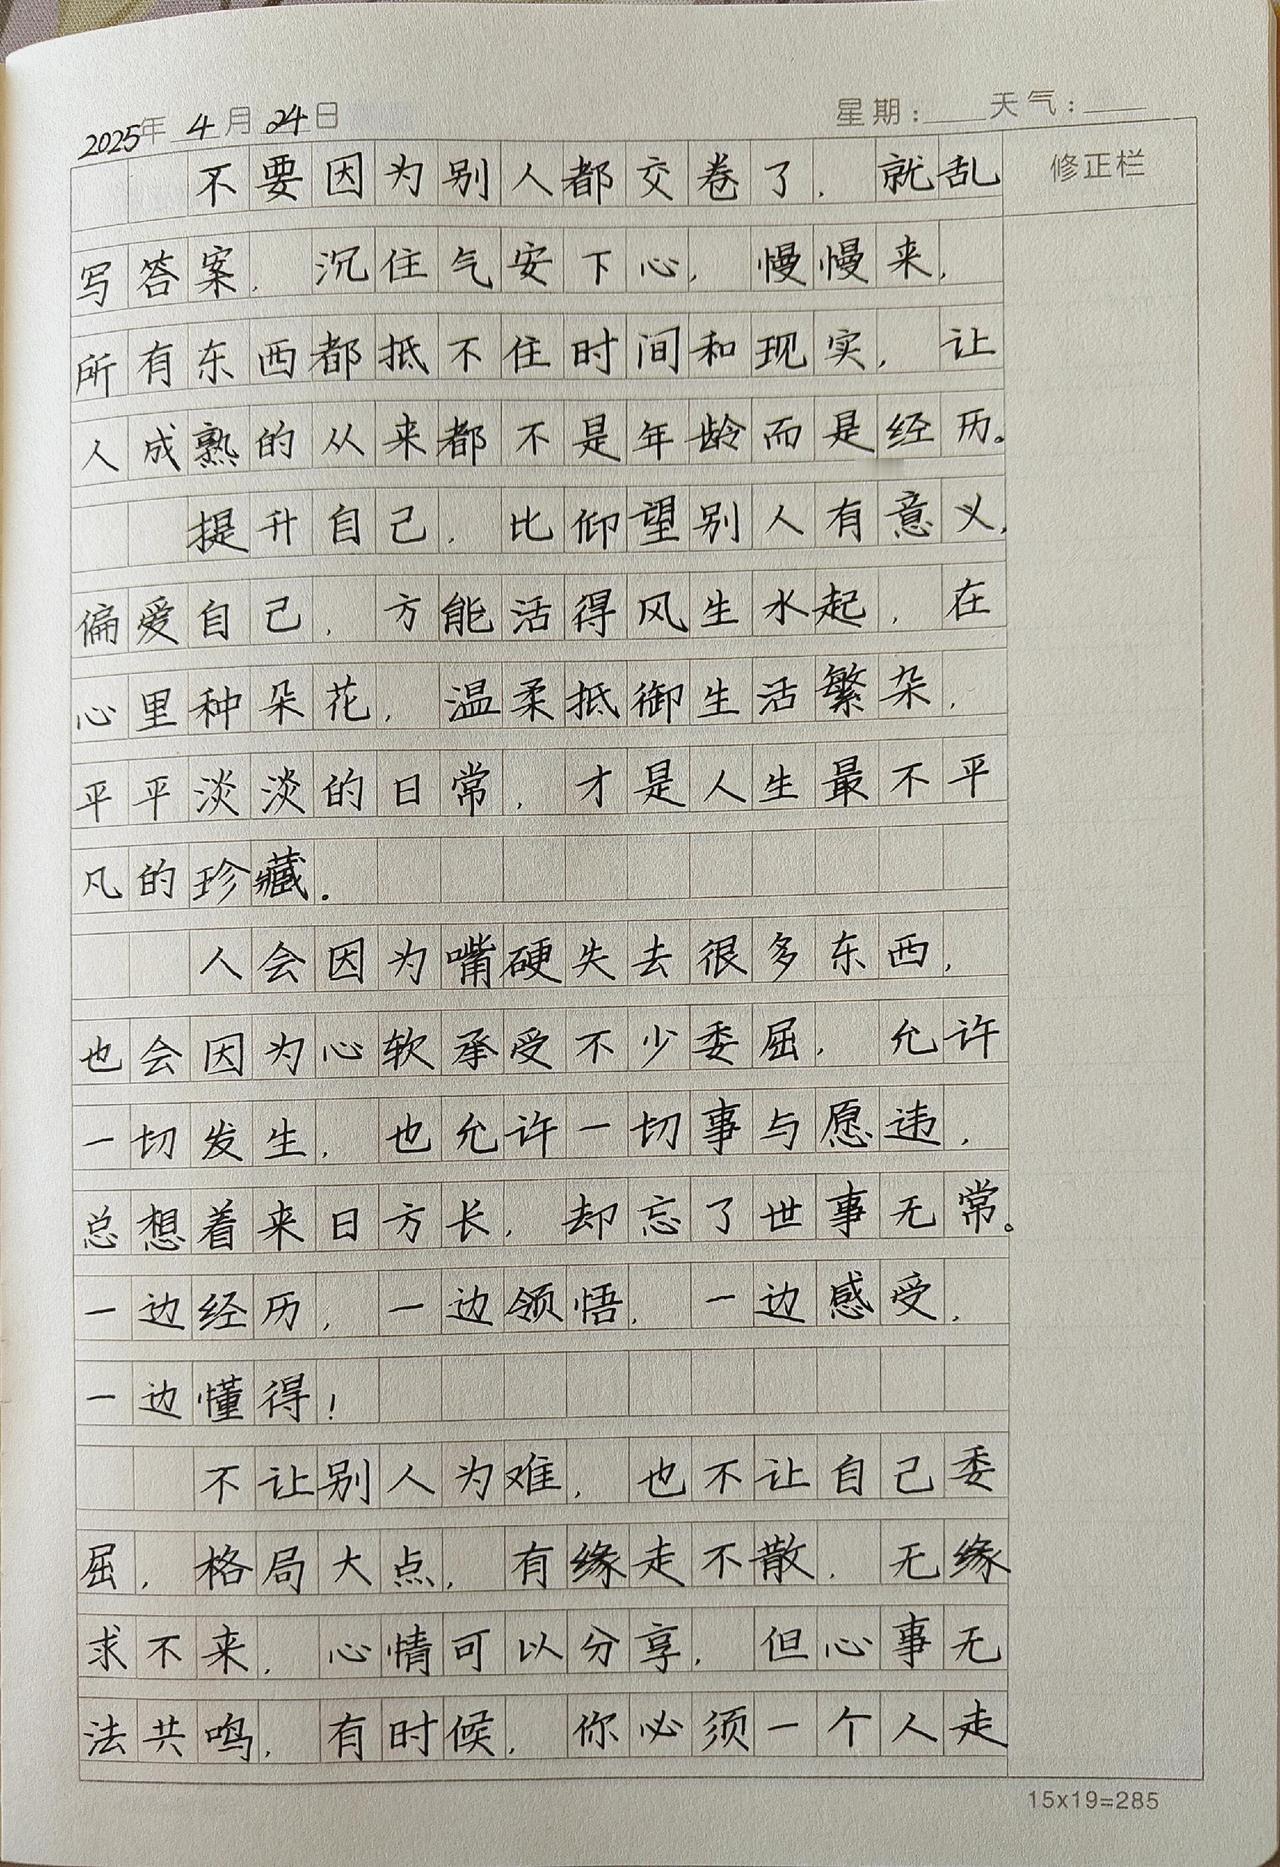 2025年 4月24日 星期：____天气：____
修正栏
不要因为别人都交卷了，就乱
写答案，沉住气安下心，慢慢来，
所有东西都抵不住时间和现实，让
人成熟的从来都不是年龄而是经历。
提升自己，比仰望别人有意义，
偏爱自己，方能活得风生水起，在
心里种朵花，温柔抵御生活繁杂，
平平淡淡的日常，才是人生最不平
凡的珍藏.
人会因为嘴硬失去很多东西，
也会因为心软承受不少委屈，允许
一切发生，也允许一切事与愿违，
总想着来日方长，却忘了世事无常。
一边经历，一边领悟，一边感受，
一边懂得！
不让别人为难，也不让自己委
屈，格局大点，有缘走不散，无缘
求不来，心情可以分享，但心事无
法共鸣，有时候，你必须一个人走
15x19=285